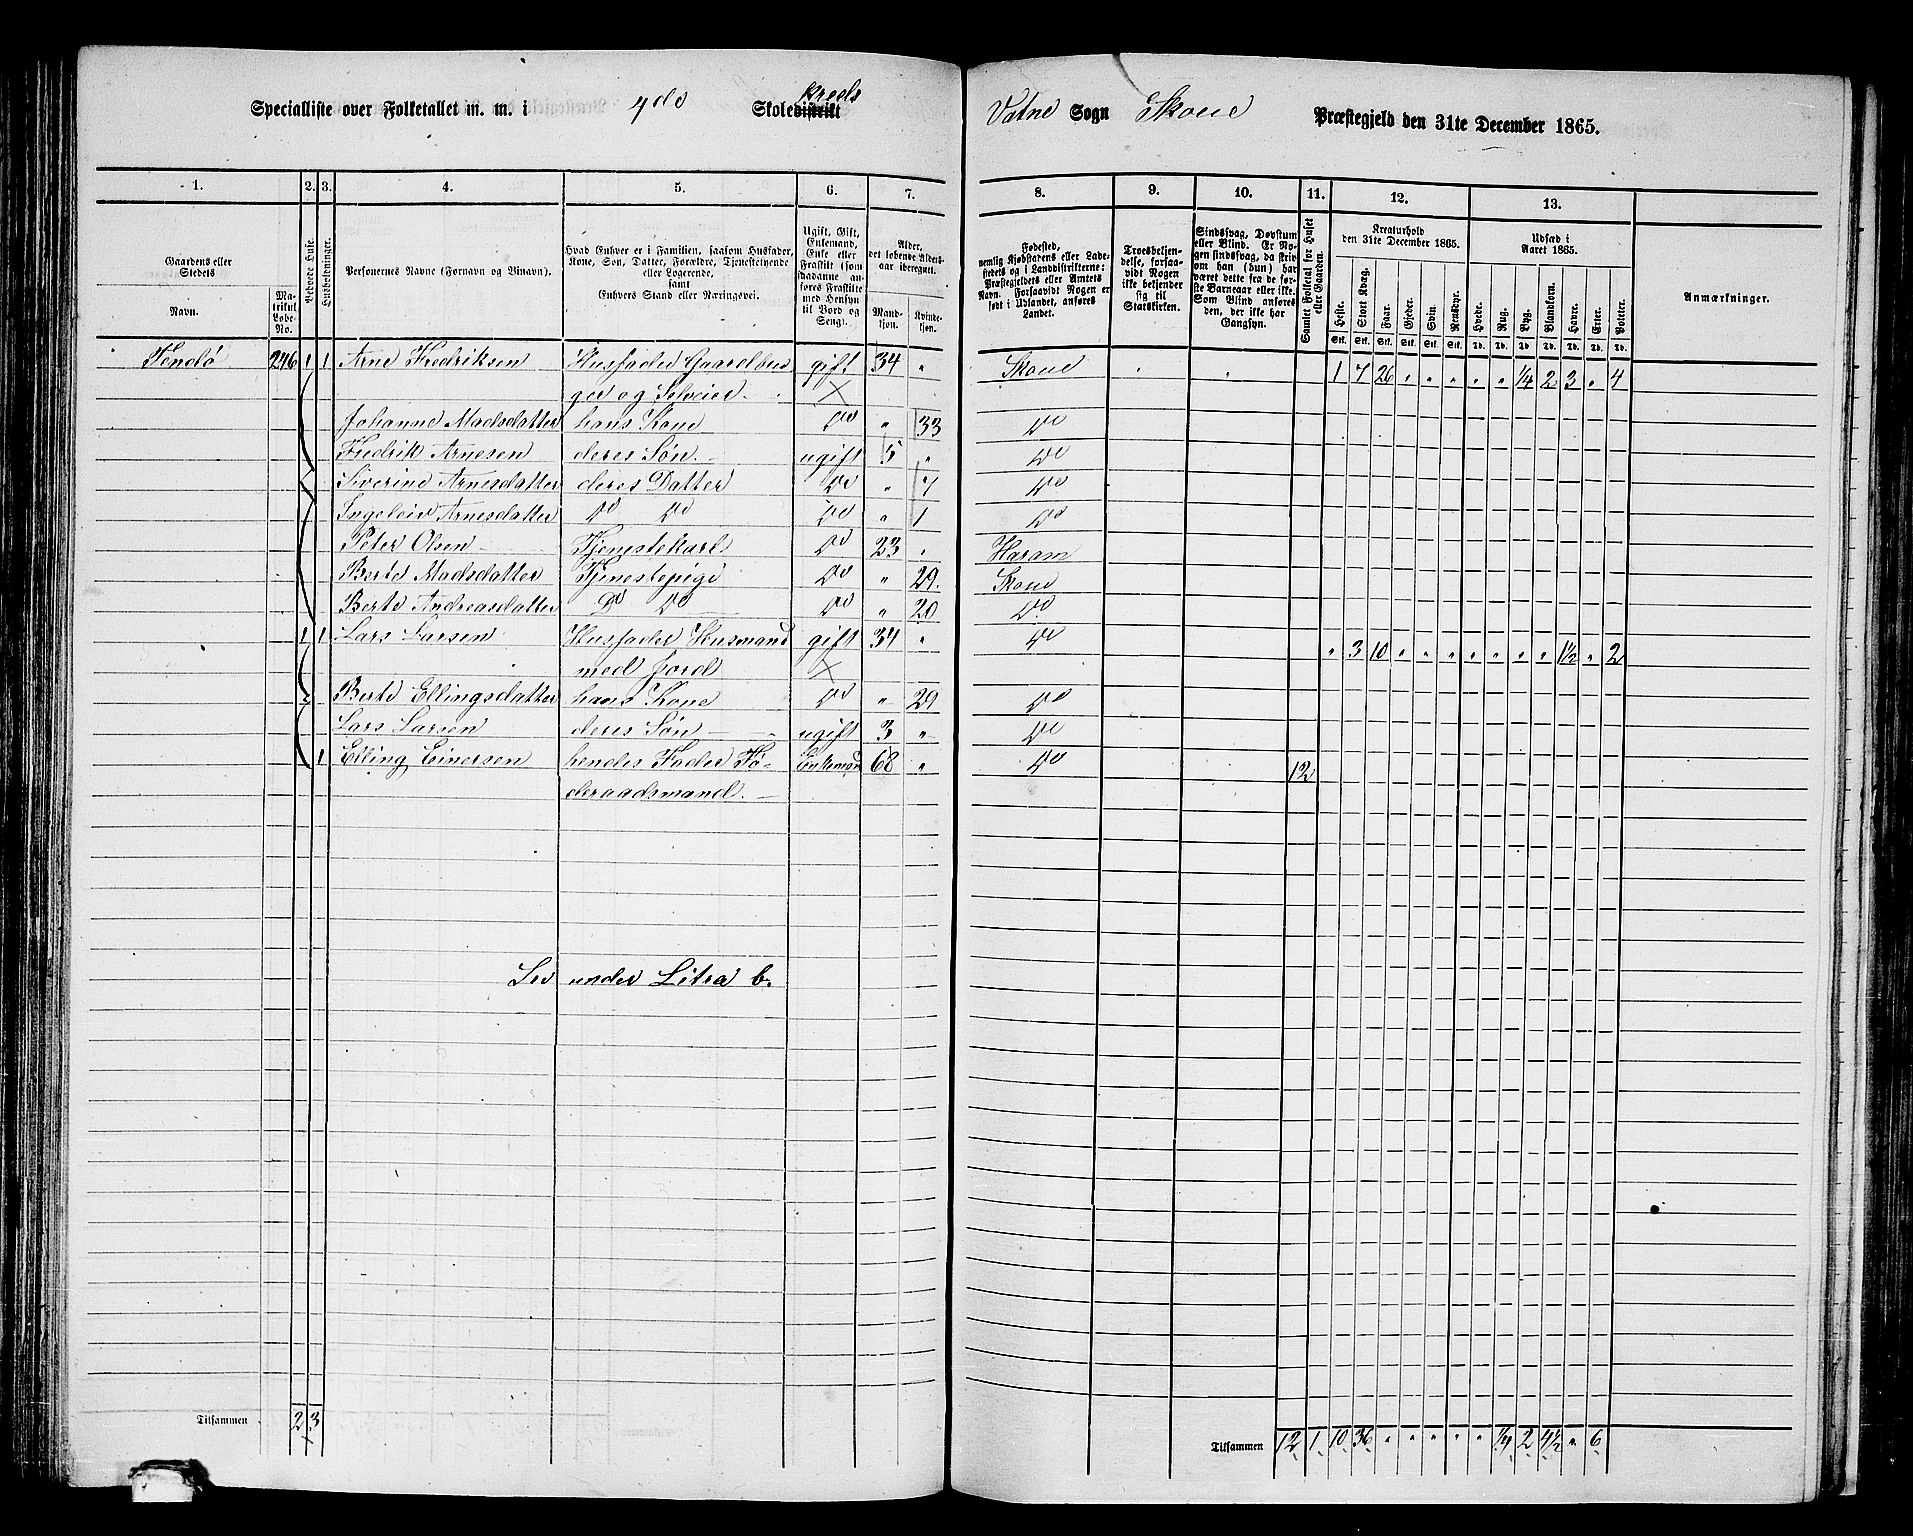 Specialliste over Folketallet m. m. i 4de Skoledistrikt Kreds Vatne Sogn Skoue Præstegjeld den 31te December 1865.
1. 2. 3. 4. 5. 6. 7. 8. 9. 10. 11. 12. 13.
Gaardens eller Stedets
Navn. Matrikul Løbe-No.
Beboede Huse.
Husholdninger.
Personernes Navne (Fornavn og Tilnavn).
Hvad Enhver er i Familien, saasom Husfader, Kone, Søn, Datter, Forældre, Tjenestetyende eller Logerende, samt Enhvers Stand eller Næringsvei.
Ugift, Gift, Enkemand, Enke eller Fraskilt (som saadanne anføres Fraskilte med Hensyn til Bord og Seng).
Alder, det løbende Aldersaar iberegnet.
Mandkjøn. Kvindekjøn.
Fødested, nemlig Kjøbstadens eller Ladestedets og i Landdistrikterne: Præstegjeldets eller Amtets Navn. Forsaavidt Nogen er født i Udlandet, anføres Landet.
Troesbekjendelse, forsaavidt Nogen ikke bekjender sig til Statskirken.
Sindssvag, Døvstum eller Blind. Er Nogen sindssvag, da skrives om han (hun) har været dette fra de første Barneaar eller ikke. Som Blind anføres den, der ikke har Gangsyn.
Samlet Folketal for Huset eller Gaarden.
Kreaturhold den 31te December 1865.
Heste. Stort Kvæg. Faar. Gjeder. Svin. Rensdyr.
Stk. Stk. Stk. Stk. Stk. Stk.
Udsæd i Aaret 1865.
Hvede. Rug. Byg. Blandkorn. Havre. Erter. Poteter.
Td. Td. Td. Td. Td. Td. Td.
Anmærkninger.
Tendø 246 1 1 Arne Fredriksen Husfader Gaardbru gift 34 " Skoue " " 1 7 26 " " " " " 1/4 2 3 " 4
ger og Selveier. ×
Johanne Madsdatter hans Kone Do " 33 Do
Fredrik Arnesen deres Søn. ugift 5 " Do
Siverine Arnesdatter deres Datter Do " 7 Do
Ingeleiv Arnesdatter Do Do Do " 1 Do
Peter Olsen Tjenestekarl Do 23 " Haram
Berte Madsdatter Tjenestepige Do " 29. Skoue
Berte Andreasdatter Do Do Do " 20 Do
1 1 Lars Larsen Husfader Husmand gift 34 " Do " 3 10 " " " " " " " 1 1/2 " 2
med Jord ×
Berte Ellingsdatter hans Kone Do " 29 Do
Lars Larsen deres Søn ugift 3 " Do
1 Elling Einersen hendes Fader Fø- Enkemand 68 " Do 12
deraadsmand.
See under Litra b.
Tilsammen 2 3
×
Tilsammen 12 1 10 36 " " " " " 1/4 2 4 1/2 " 6